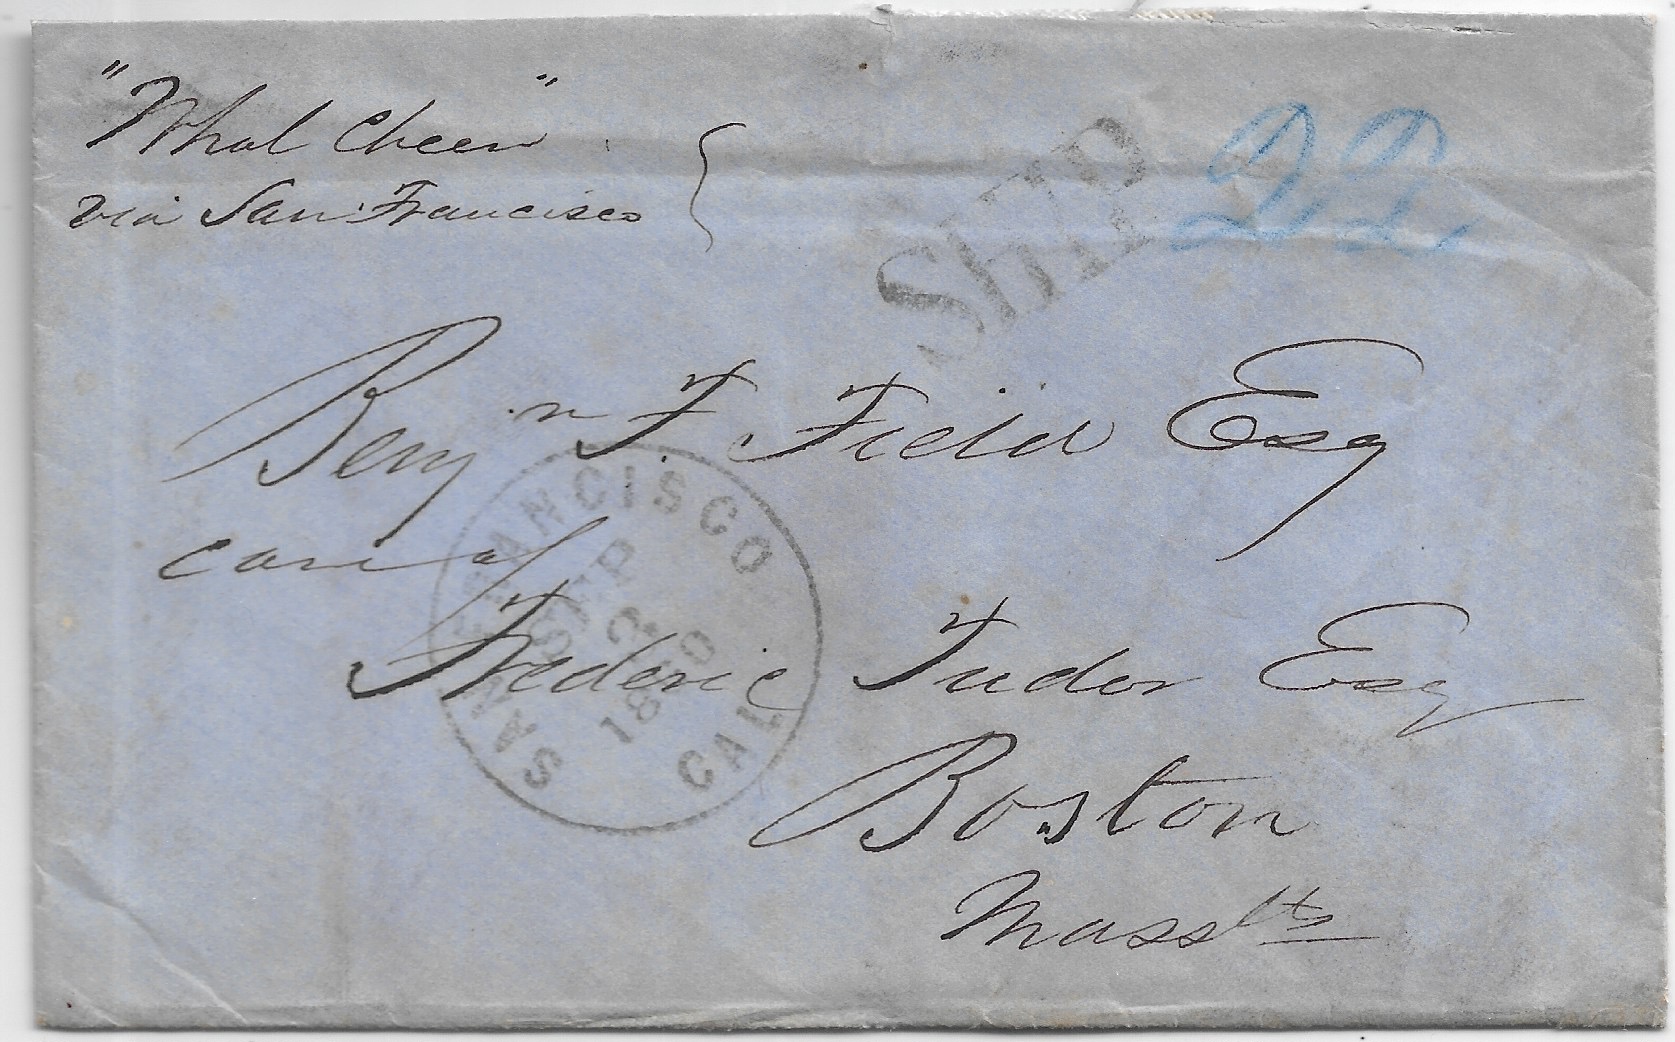 "What Cheer"
via San Francisco
SHIP
22
Benjn F. Field Esq
care of
Frederic Tudor Esq
Boston
Masstts
SAN FRANCISCO CAL
SEP
18